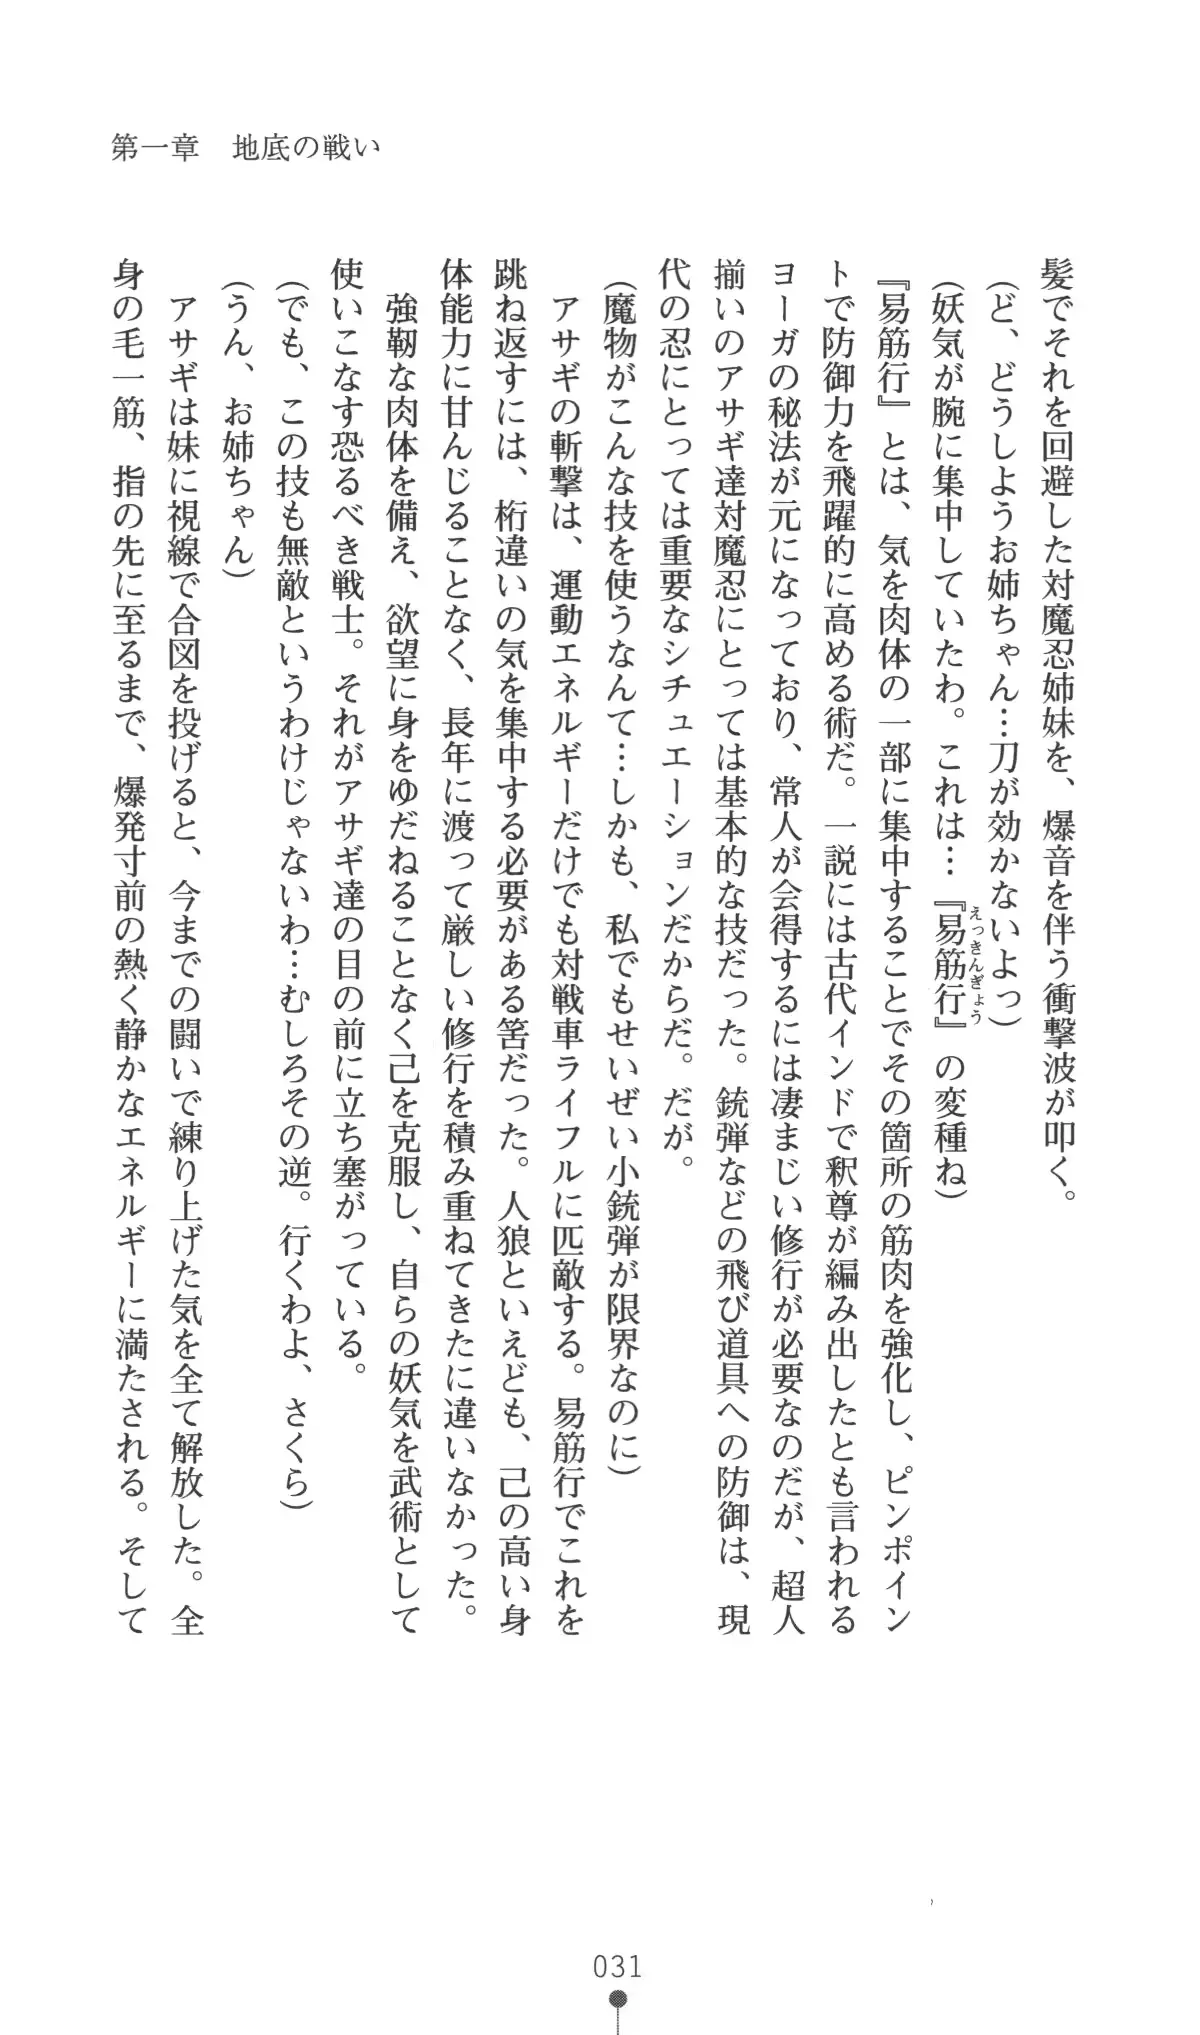 第一章　地底の戦い
髪でそれを回避した対魔忍姉妹を、爆音を伴う衝撃波が叩く。
(ど、どうしようお姉ちゃん…刀が効かないよっ)
(妖気が腕に集中していたわ。これは…『易筋行』の変種ね)
えっきんぎょう
『易筋行』とは、気を肉体の一部に集中することでその箇所の筋肉を強化し、ピンポイン
トで防御力を飛躍的に高める術だ。一説には古代インドで釈尊が編み出したとも言われる
ヨーガの秘法が元になっており、常人が会得するには凄まじい修行が必要なのだが、超人
揃いのアサギ達対魔忍にとっては基本的な技だった。銃弾などの飛び道具への防御は、現
代の忍にとっては重要なシチュエーションだからだ。だが。
(魔物がこんな技を使うなんて…しかも、私でもせいぜい小銃弾が限界なのに)
　アサギの斬撃は、運動エネルギーだけでも対戦車ライフルに匹敵する。易筋行でこれを
跳ね返すには、桁違いの気を集中する必要がある筈だった。人狼といえども、己の高い身
体能力に甘んじることなく、長年に渡って厳しい修行を積み重ねてきたに違いなかった。
　強靭な肉体を備え、欲望に身をゆだねることなく己を克服し、自らの妖気を武術として
使いこなす恐るべき戦士。それがアサギ達の目の前に立ち塞がっている。
(でも、この技も無敵というわけじゃないわ…むしろその逆。行くわよ、さくら)
(うん、お姉ちゃん)
　アサギは妹に視線で合図を投げると、今までの闘いで練り上げた気を全て解放した。全
身の毛一筋、指の先に至るまで、爆発寸前の熱く静かなエネルギーに満たされる。そして
031